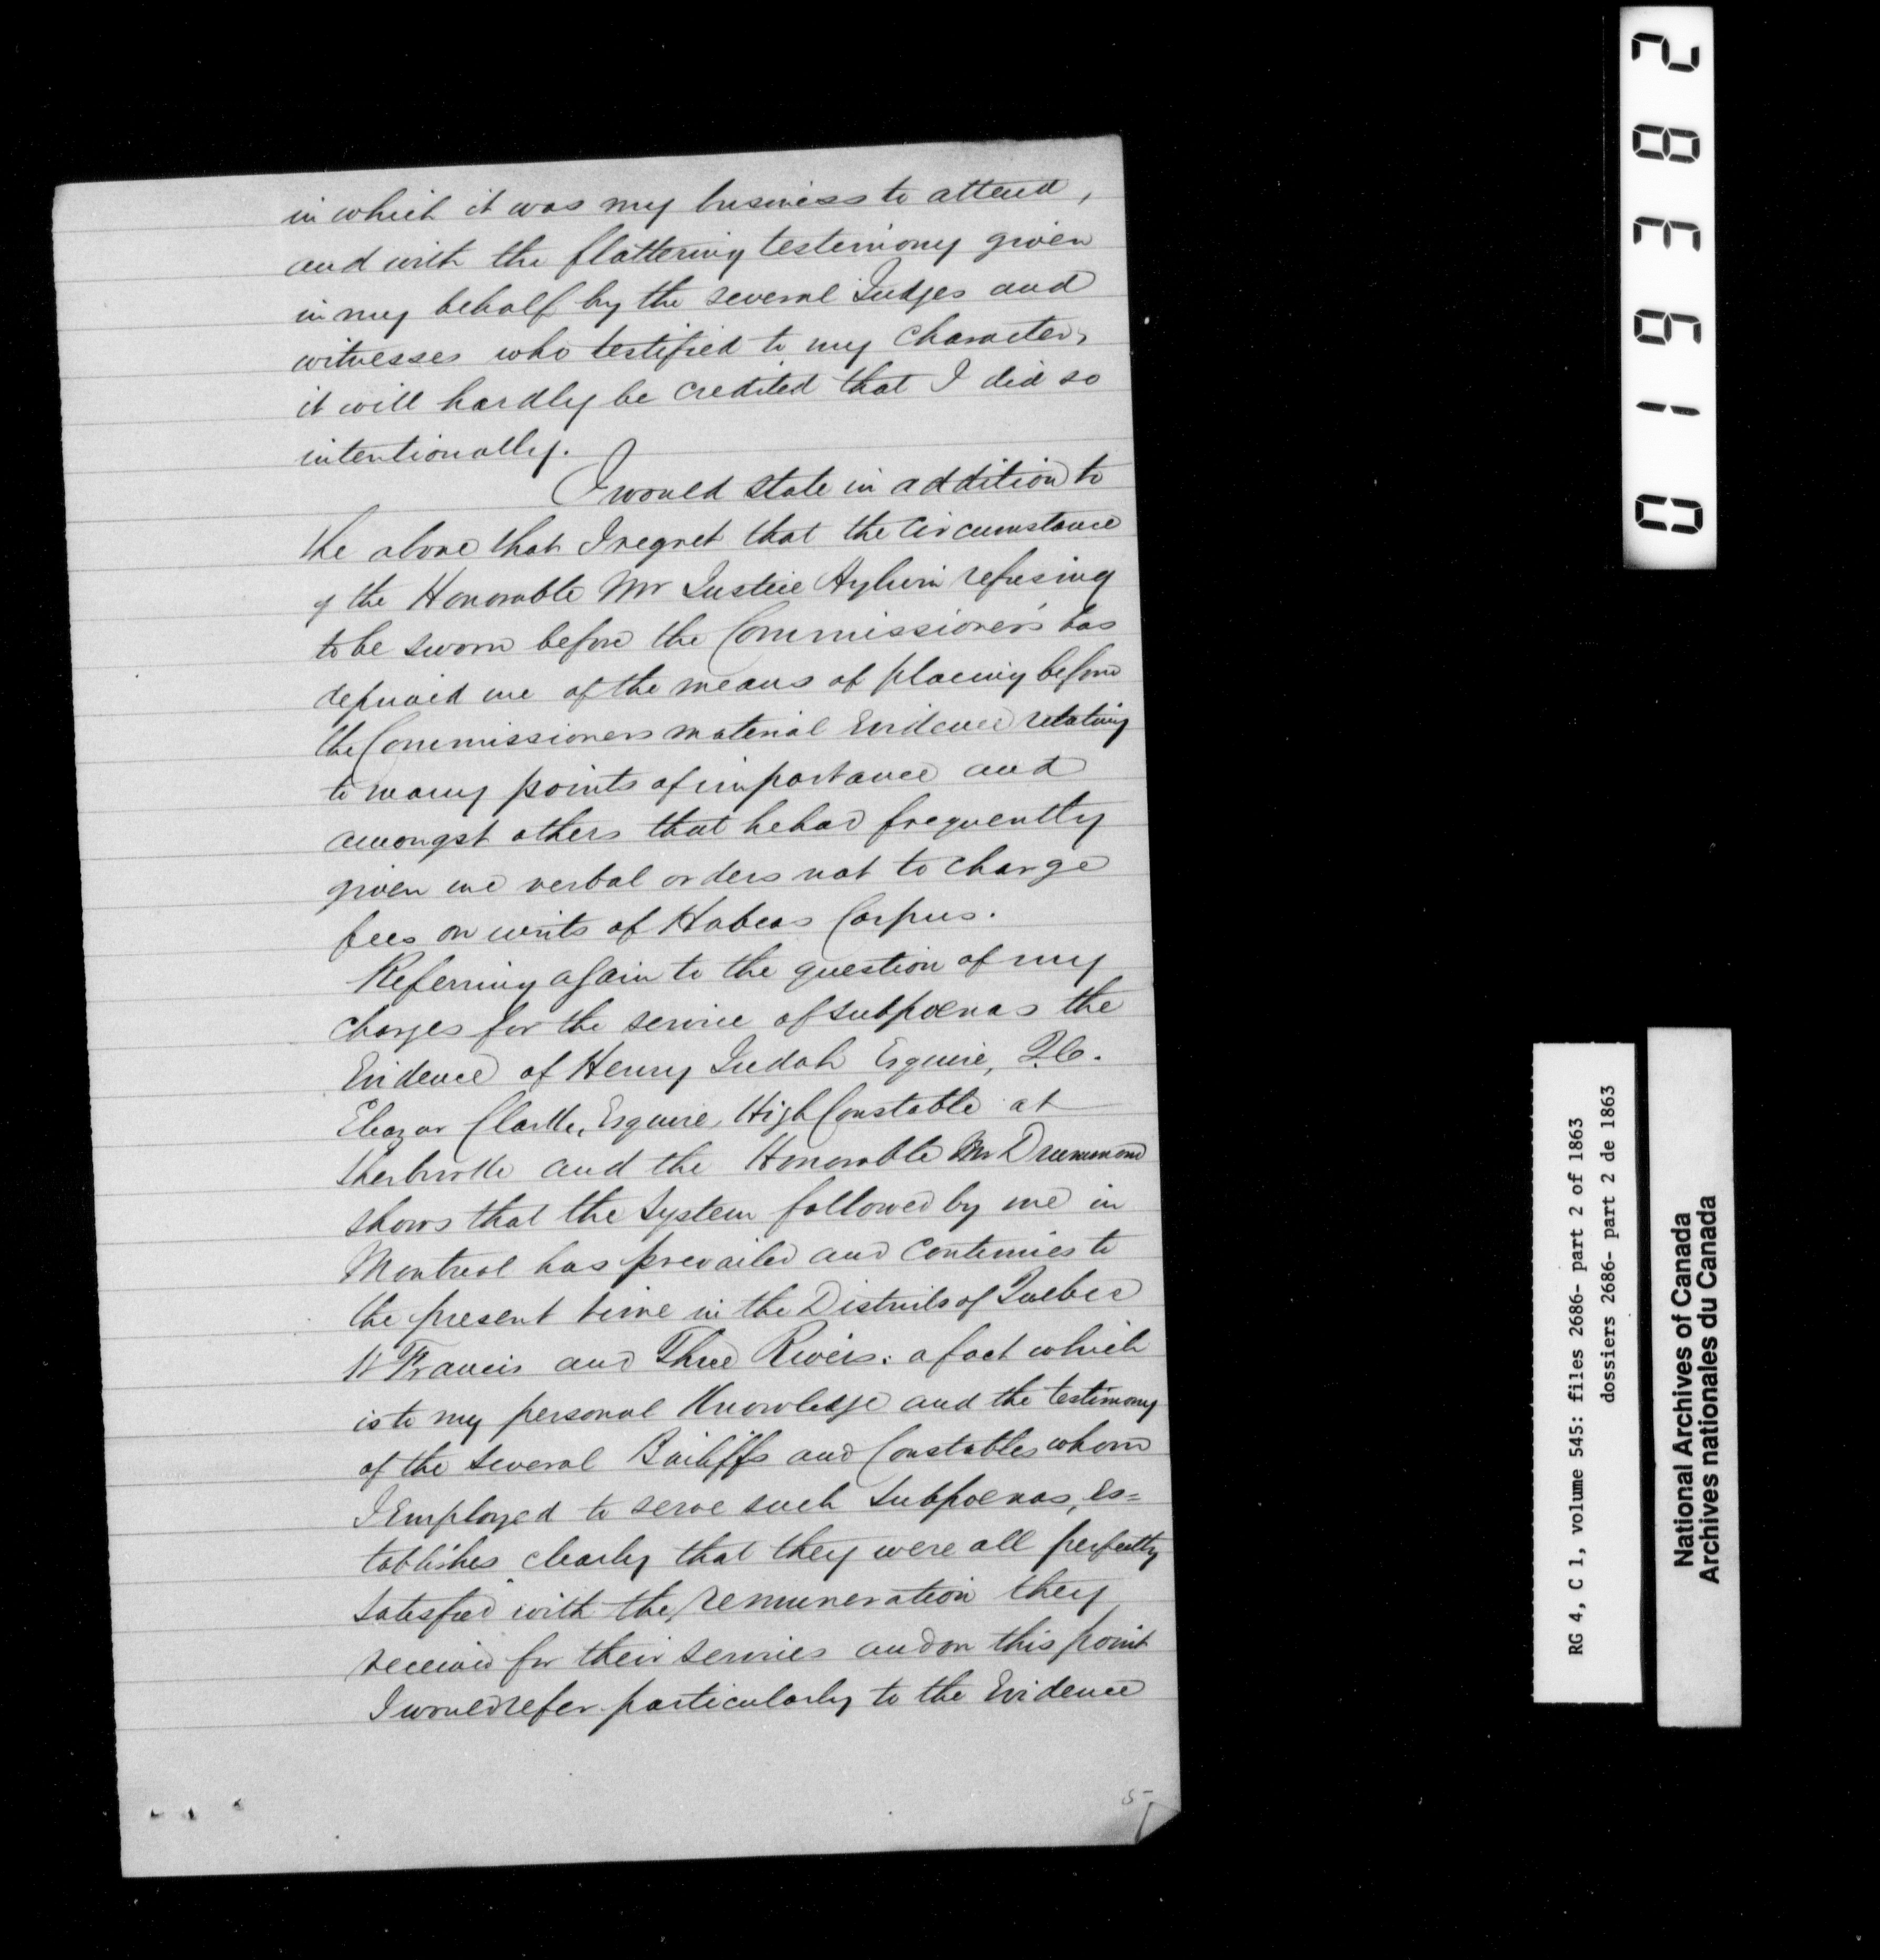 in which it was my business to attend,
and with the flattering testimony given
in my behalf by the several Judges and
witnesses who testified to my character,
it will hardly be credited that I did so
intentionally.
I would state in addition to
the above that I regret that the circumstance
of the Honorable Mr Justice Aylwin refusing
to be sworn before the Commissioners has
deprived me of the means of placing before
the Commissioners material Evidence relating
to many points of importance and
amongst others that he had frequently
given me verbal orders not to charge
fees on writs of Habeas Corpus.
Referring again to the question of my
charges for the service of subpoenas the
Evidence of Henry Judah Esquire, Q.C.
Eleazar Clarke, Esquire, High Constable at
Sherbrooke and the Honorable Mr Drummond
shows that the system followed by me in
Montreal has prevailed and continues to
the present time in the Districts of Quebec
St Francis and Three Rivers: a fact which
is to my personal Knowledge and the testimony
of the several Bailiffs and Constables whom
I Employed to serve such Subpoenas, es=
tablishes clearly that they were all perfectly
satisfied with the remuneration they
received for their services and on this point
I would refer particularly to the Evidence
5
019382
RG 4, C 1, volume 545: files 2686- part 2 of 1863
dossiers 2686- part 2 de 1863
National Archives of Canada
Archives nationales du Canada